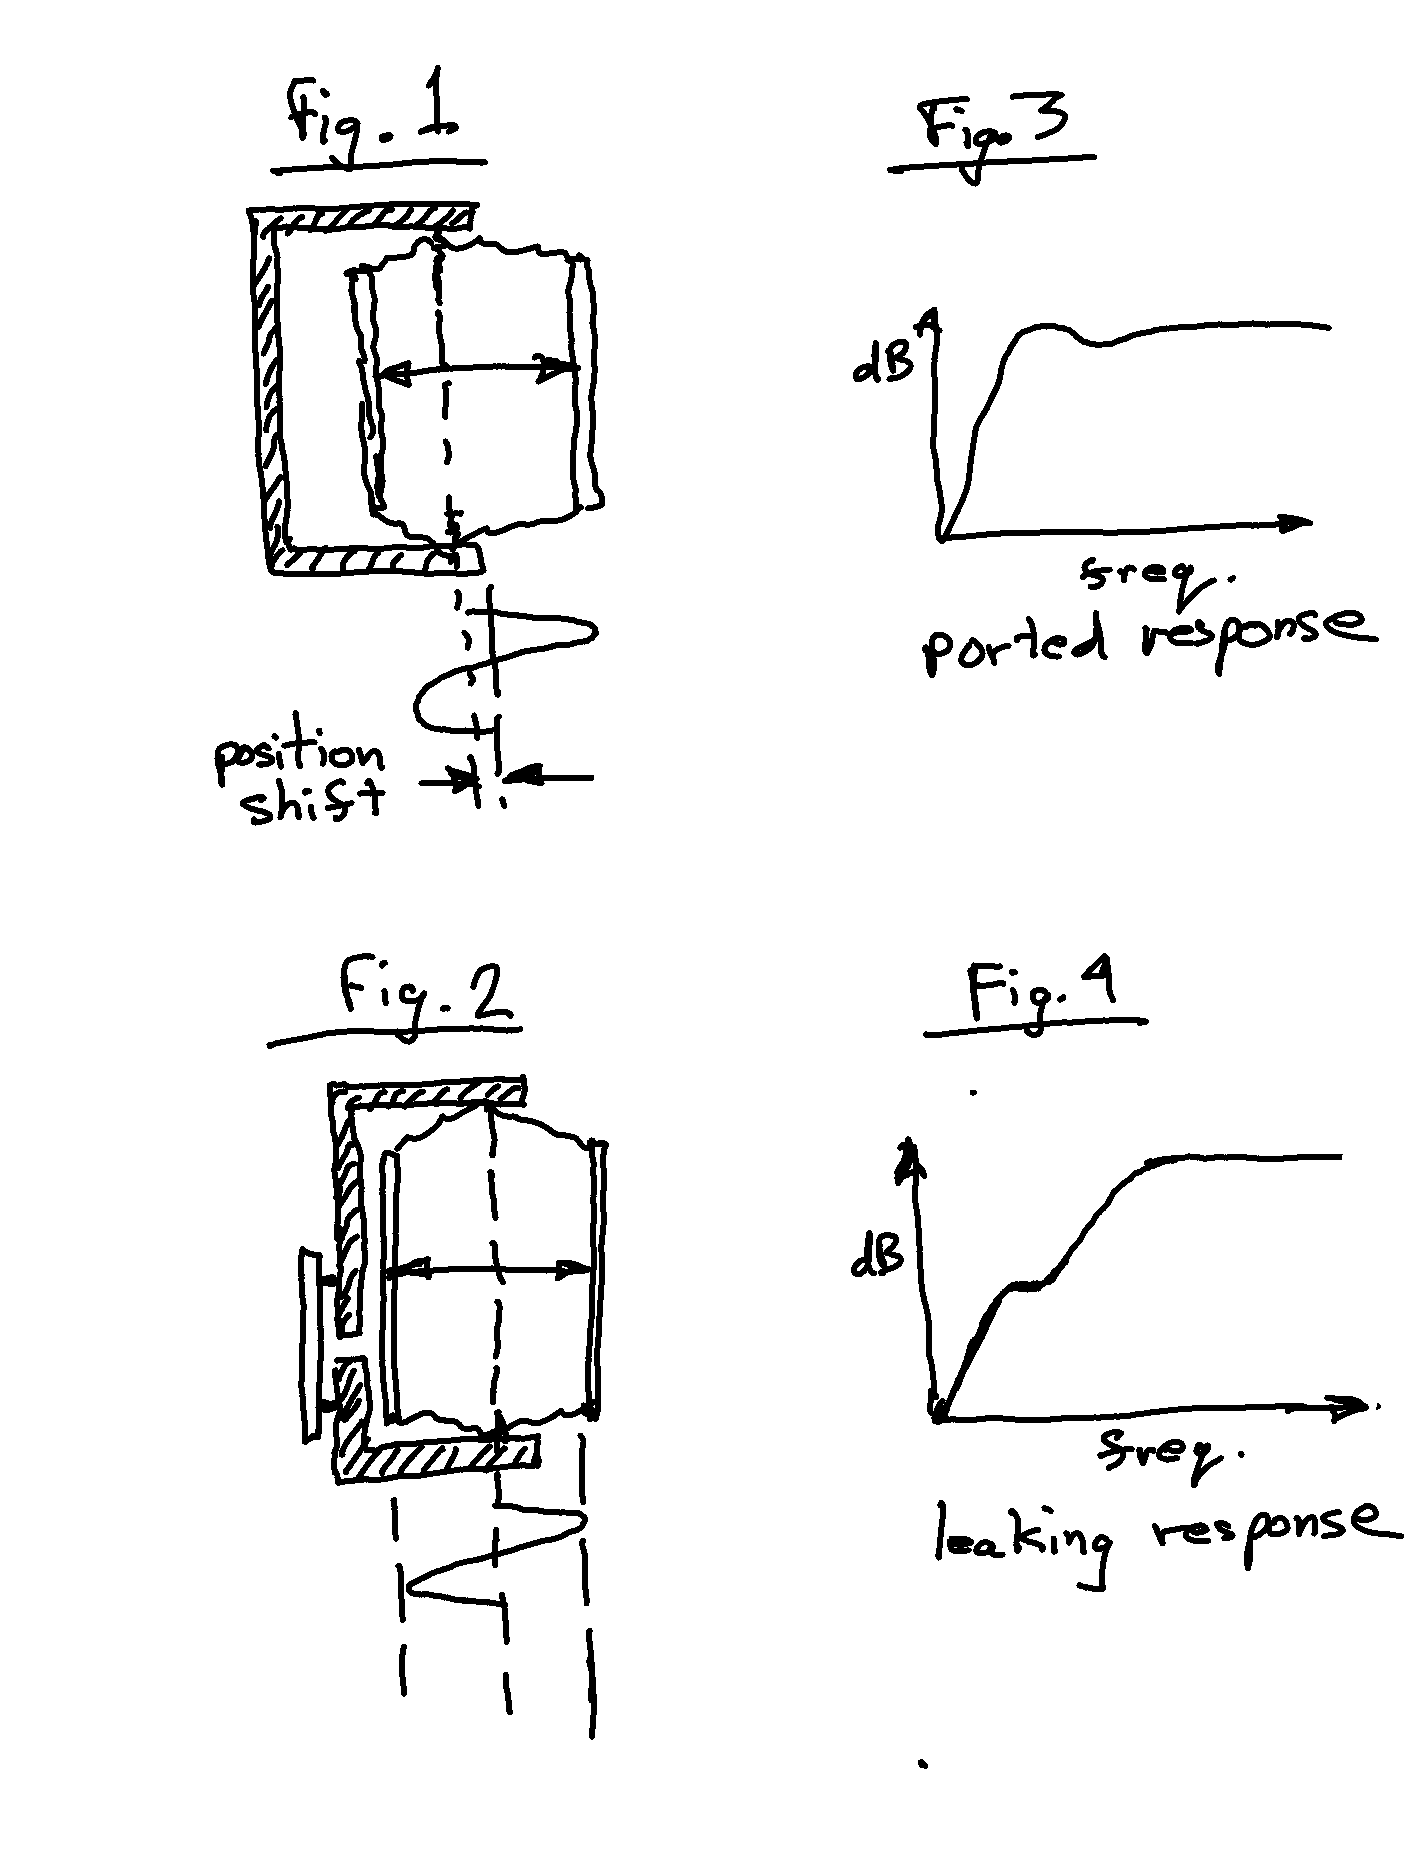 Fig. 1
position
shift
Fig. 3
dB
freq.
ported response
Fig. 2
Fig. 4
dB
freq.
leaking response